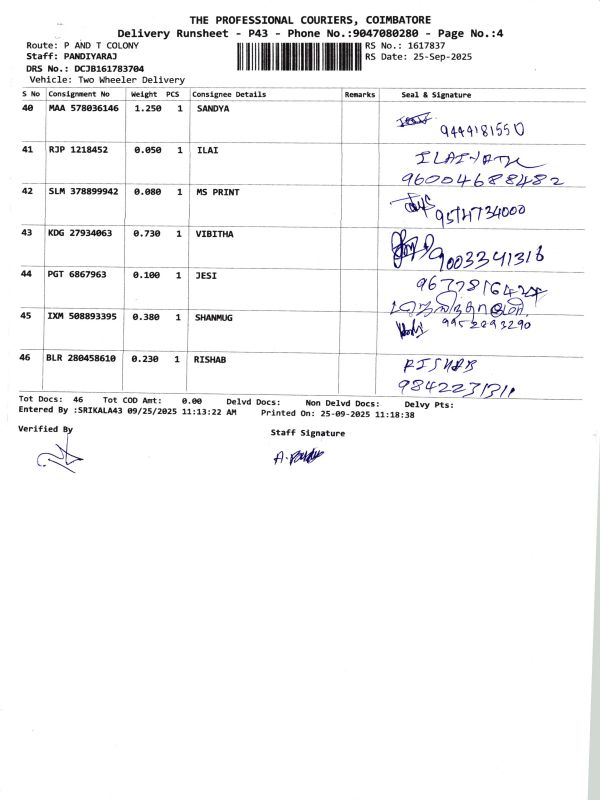 THE PROFESSIONAL COURIERS, COIMBATORE
Delivery Runsheet - P43 - Phone No.:9047080280 - Page No.:4
Route: P AND T COLONY
RS No.: 1617837
Staff: PANDIYARAJ
RS Date: 25-Sep-2025
DRS No.: DCJB161783704
Vehicle: Two Wheeler Delivery
S No Consignment No Weight PCS Consignee Details Remarks Seal & Signature
40 MAA 578036146 1.250 1 SANDYA
9444181550
41 RJP 1218452 0.050 1 ILAI
96004688482
42 SLM 378899942 0.080 1 MS PRINT
43 KDG 27934063 0.730 1 VIBITHA
9003341316
44 PGT 6867963 0.100 1 JESI
45 IXM 508893395 0.380 1 SHANMUG
46 BLR 280458610 0.230 1 RISHAB
RISHAB
Tot Docs: 46 Tot COD Amt: 0.00 Delvd Docs: Non Delvd Docs: Delvy Pts:
Entered By :SRIKALA43 09/25/2025 11:13:22 AM Printed On: 25-09-2025 11:18:38
Verified By
Staff Signature